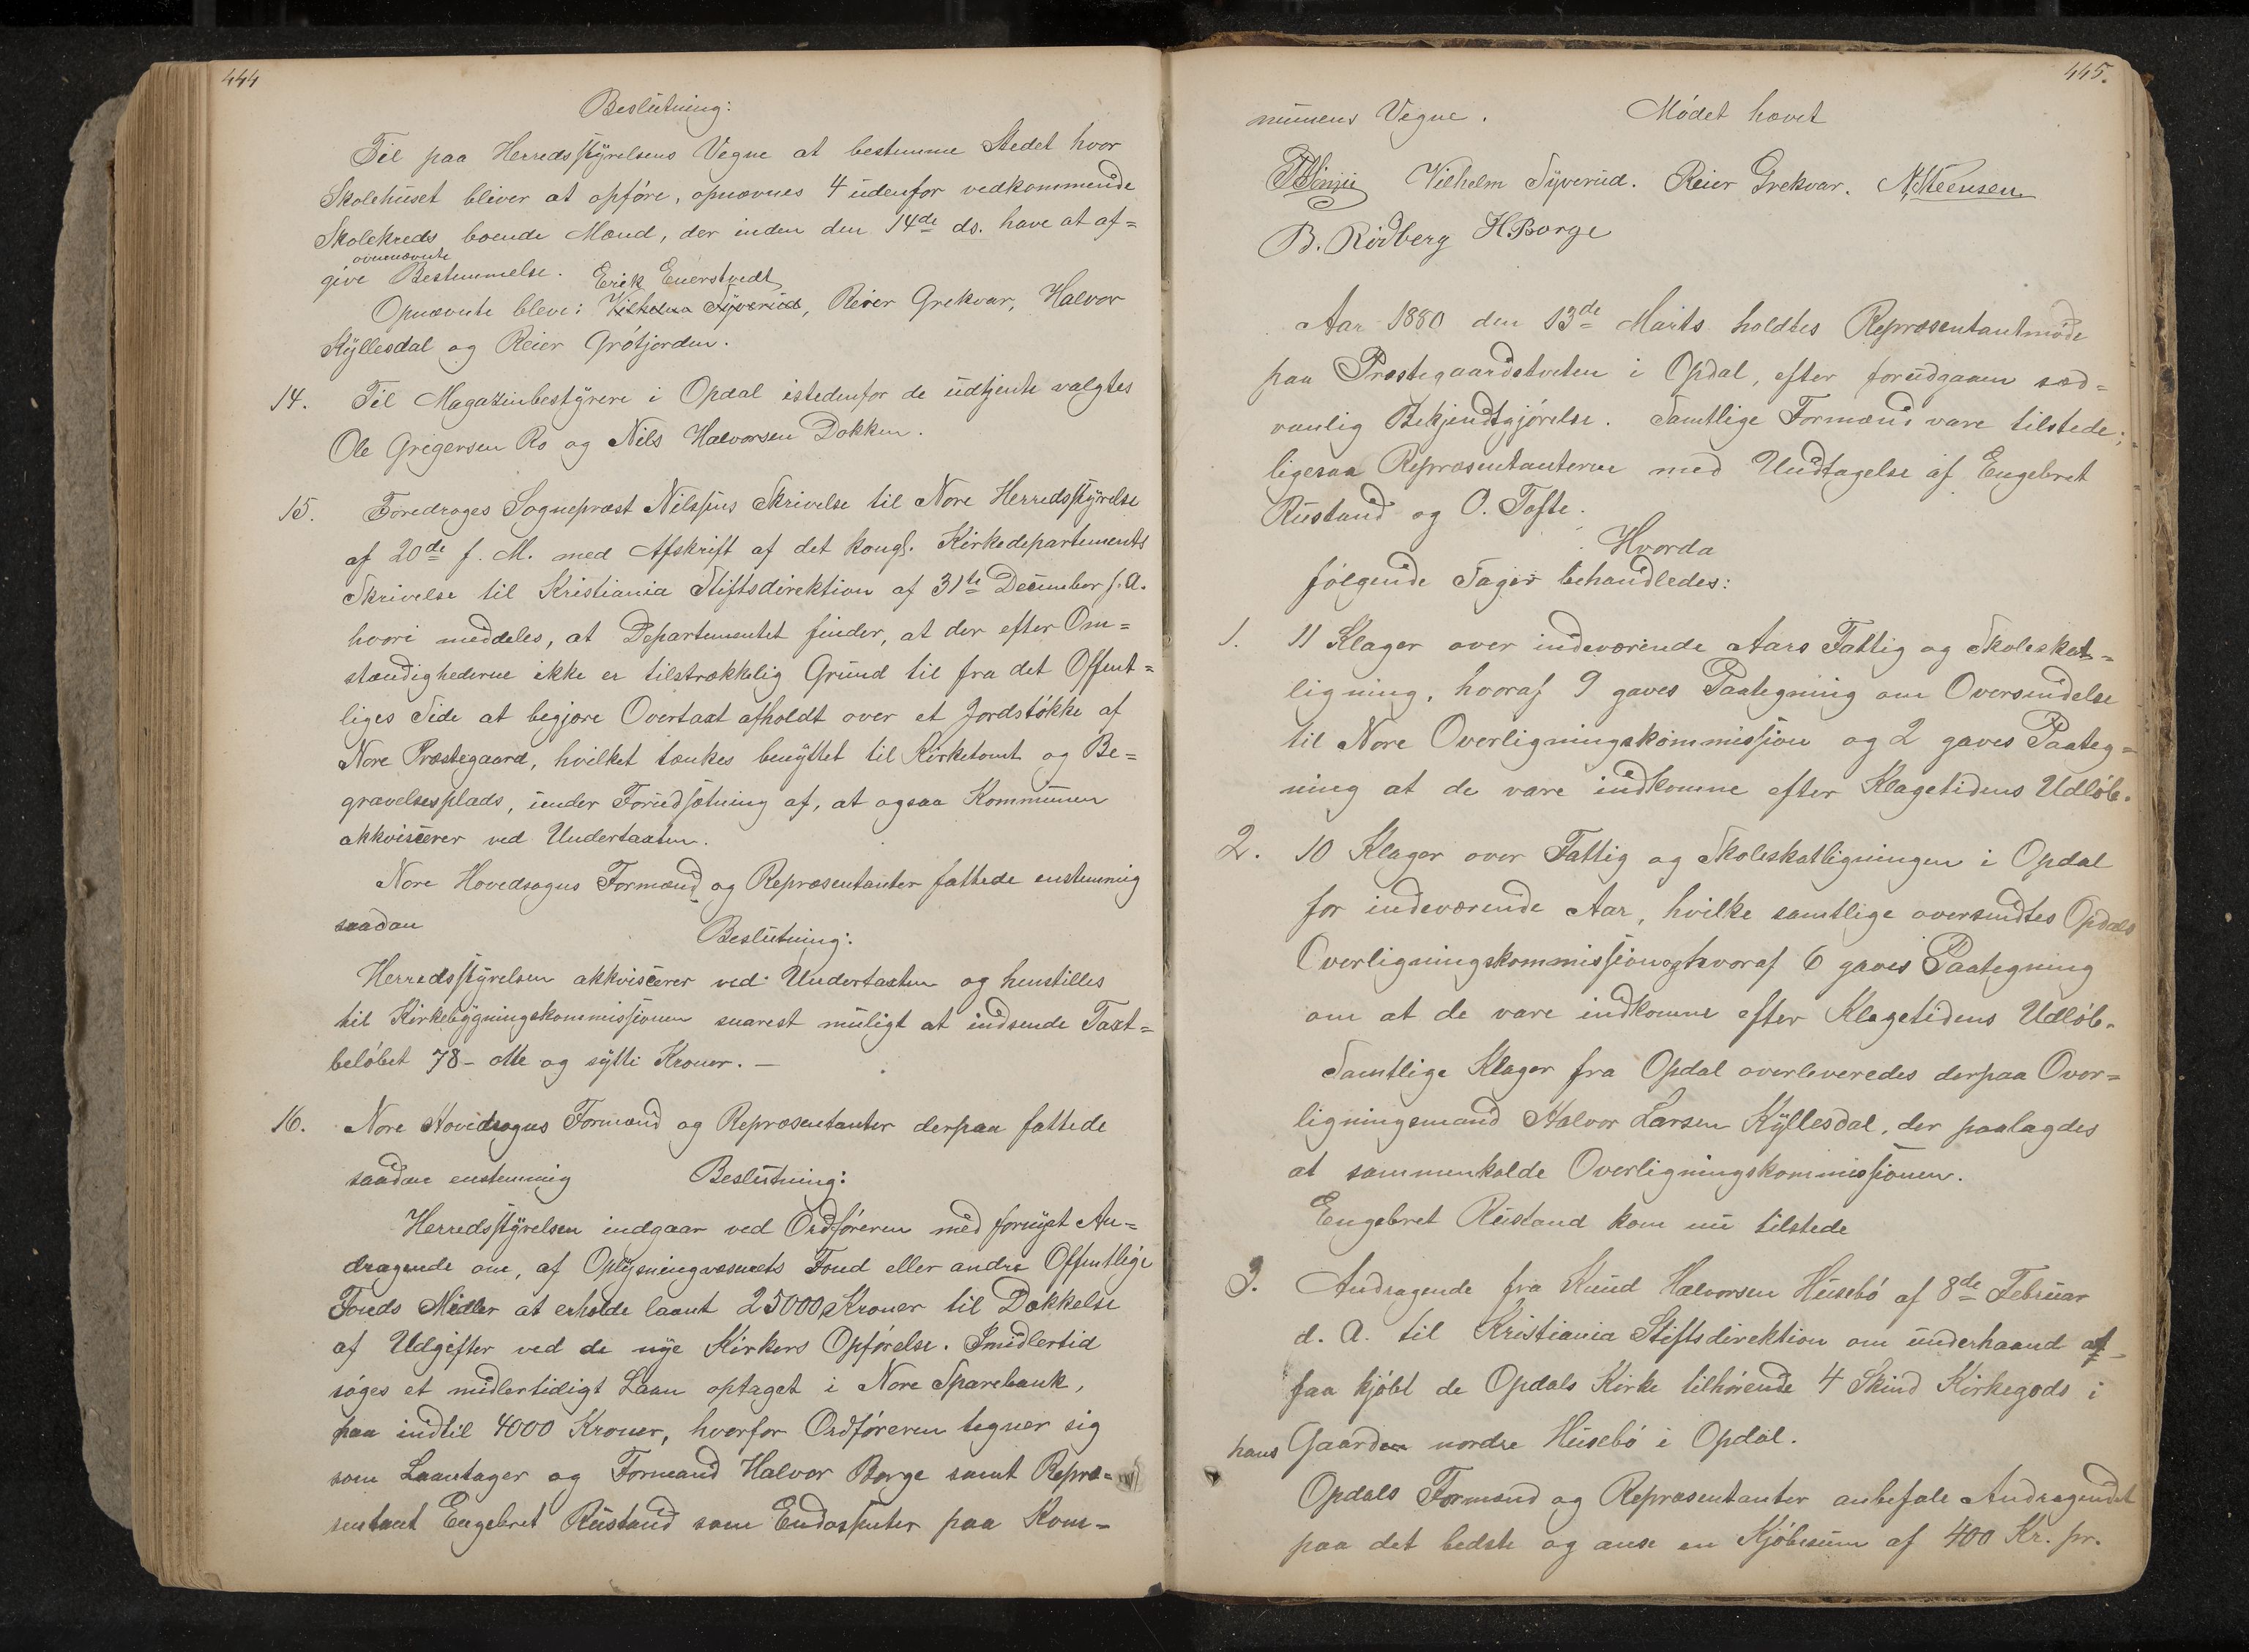 444
Beslutning:
Til paa Herredsstyrelsens Vegne at bestemme Stedet hvor
Skolehuset bliver at opføre, opnævnes 4 udenfor vedkommende
Skolekreds boende Mænd, der inden den 14de ds. have at af=
ovennævnte
give Bestemmelse. Erik Enerstvedt
Opnævnte bleve: Vilhelm Syverud, Reier Grekvar, Halvor
Kyllesdal og Reier Grøtjorden.
14. Til Magazinbestyrere i Opdal istedenfor de udtjente valgtes
Ole Gregersen Ro og Nils Halvorsen Dokken.
15. Foredroges Sognepræst Nilssens Skrivelse til Nore Herredsstyrelse
af 20de f. M. med Afskrift af det kongl. Kirkedepartements
Skrivelse til Kristiania Stiftsdirektion af 31te December f. A.
hvori meddeles, at Departementet finder, at der efter Om=
stændighederne ikke er tilstrækkelig Grund til fra det Offent=
liges Side at begjære Overtaxt afholdt over et Jordstøkke af
Nore Præstegaard, hvilket tænkes benyttet til Kirketomt og Be=
gravelsesplads, under Forudsætning af, at ogsaa Kommunen
akkviscerer ved Undertaxten.
Nore Hovedsogns Formænd og Repræsentanter fattede enstemmig
saadan Beslutning:
Herredsstyrelsen akkviscerer ved Undertaxten og henstilles
til Kirkebygningskommissionen snarest muligt at indsende Taxt=
beløbet 78 - otte og sytti Kroner. —
16. Nore Hovedsogns Formænd og Repræsentanter derpaa fattede
saadan enstemmig Beslutning:
Herredsstyrelsen indgaar ved Ordføreren med fornyet An=
dragende om, af Oplysningvæsnets Fond eller andre Offentlige
Fonds Midler at erholde laant 25000 Kroner til Dækkelse
af Udgifter ved de nye Kirkers Opførelse. Imidlertid
søges et midlertidigt Laan optaget i Nore Sparebank,
paa indtil 4000 Kroner, hvorfor Ordføreren tegner sig
som Laantager og Formand Halvor Borge samt Repræ=
sentant Engebret Rustand som Endossenter paa Kom=
445.
munens Vegne. Mødet hævet
Vilhelm Syverud. Reier Grekvar. N. Steensen
B. Rødberg H. Borge
Aar 1880 den 13de Marts holdtes Repræsentantmøde
paa Præstegaardstveten i Opdal, efter forudgaaen sæd=
vanlig Bekjendtgjørelse. Samtlige Formænd vare tilstede;
ligesaa Repræsentanterne med Undtagelse af Engebret
Rustand og O. Tofte.
Hvorda
følgende Sager behandledes:
1. 11 Klager over indeværende Aars Fattig og Skoleskat=
ligning, hvoraf 9 gaves Paategning om Oversendelse
til Nore Overligningskommission og 2 gaves Paateg=
ning at de vare indkomne efter Klagetidens Udløb.
2. 10 Klager over Fattig og Skoleskatligningen i Opdal
for indeværende Aar, hvilke samtlige oversendtes Opdals
Overligningskommission og hvoraf 6 gaves Paategning
om at de vare indkomne efter Klagetidens Udløb.
Samtlige Klager fra Opdal overleveredes derpaa Over=
ligningsmand Halvor Larsen Kyllesdal, der paalagdes
at sammenkalde Overligningskommissionen.
Engebret Rustand kom nu tilstede
3. Andragende fra Knud Halvorsen Husebø af 8de Februar
d. A. til Kristiania Stiftsdirektion om underhaand at
faa kjøbt de Opdals Kirke tilhørende 4 Skind Kirkegods i
hans Gaarden nordre Husebø i Opdal.
Opdals Formænd og Repræsentanter anbefale Andragendet
paa det bedste og anse en Kjøbesum af 400 Kr. pr.